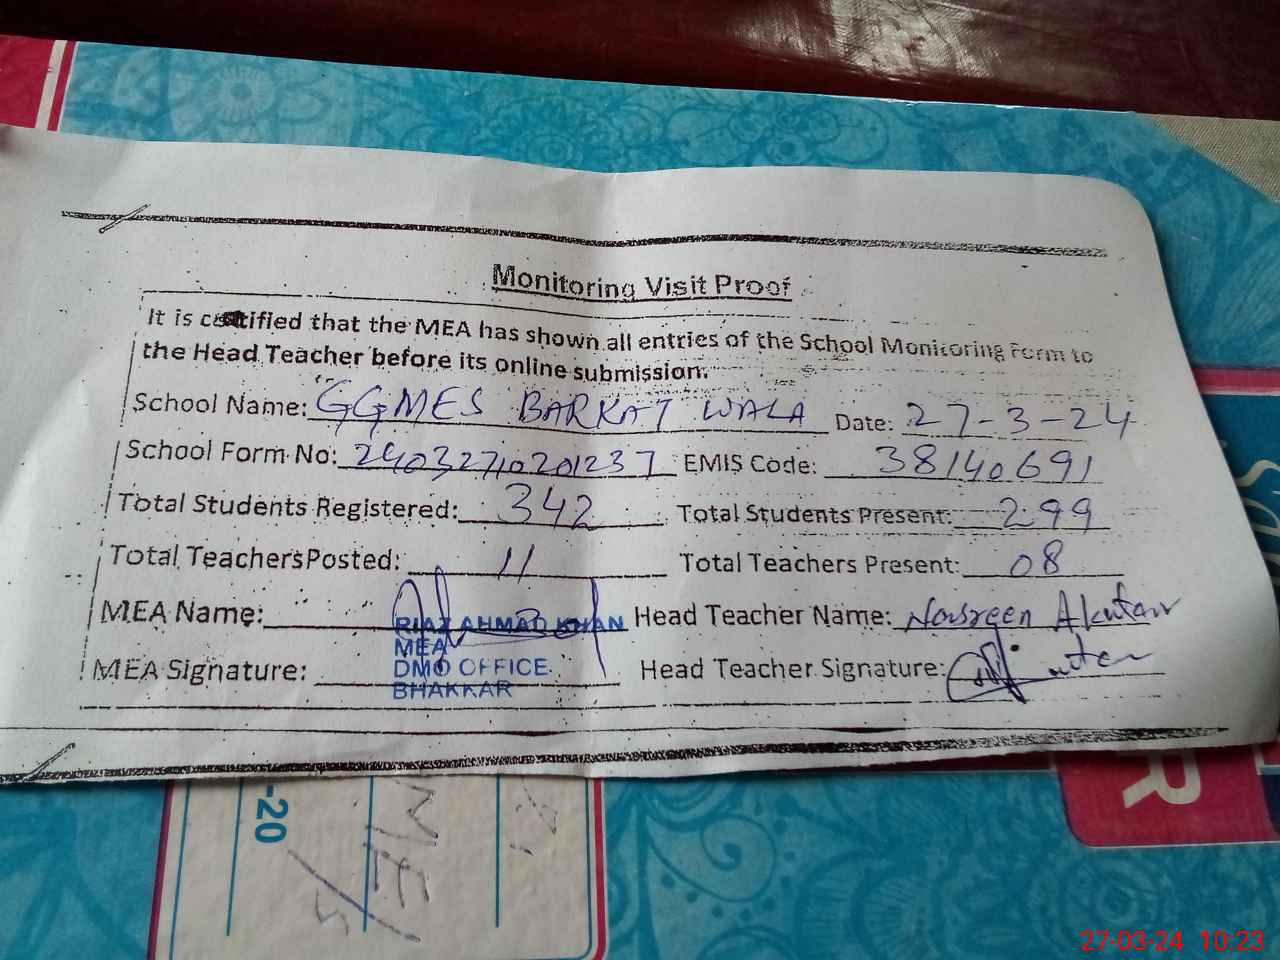 Monitoring Visit Proof
It is certified that the MEA has shown all entries of the School Monitoring Form to
the Head Teacher before its online submission.
School Name: GGMES BARKAT WALA Date: 27-3-24
School Form No: 24032710201237 EMIS Code: 38140691
Total Students Registered: 342 Total Students Present: 299
Total Teachers Posted: 11 Total Teachers Present: 08
MEA Name: RIAZ AHMAD KHAN Head Teacher Name: Nousreen Akhtar
MEA
MEA Signature: DMO OFFICE Head Teacher Signature:
BHAKKAR
-20
ME/s
R
27-03-24 10:23